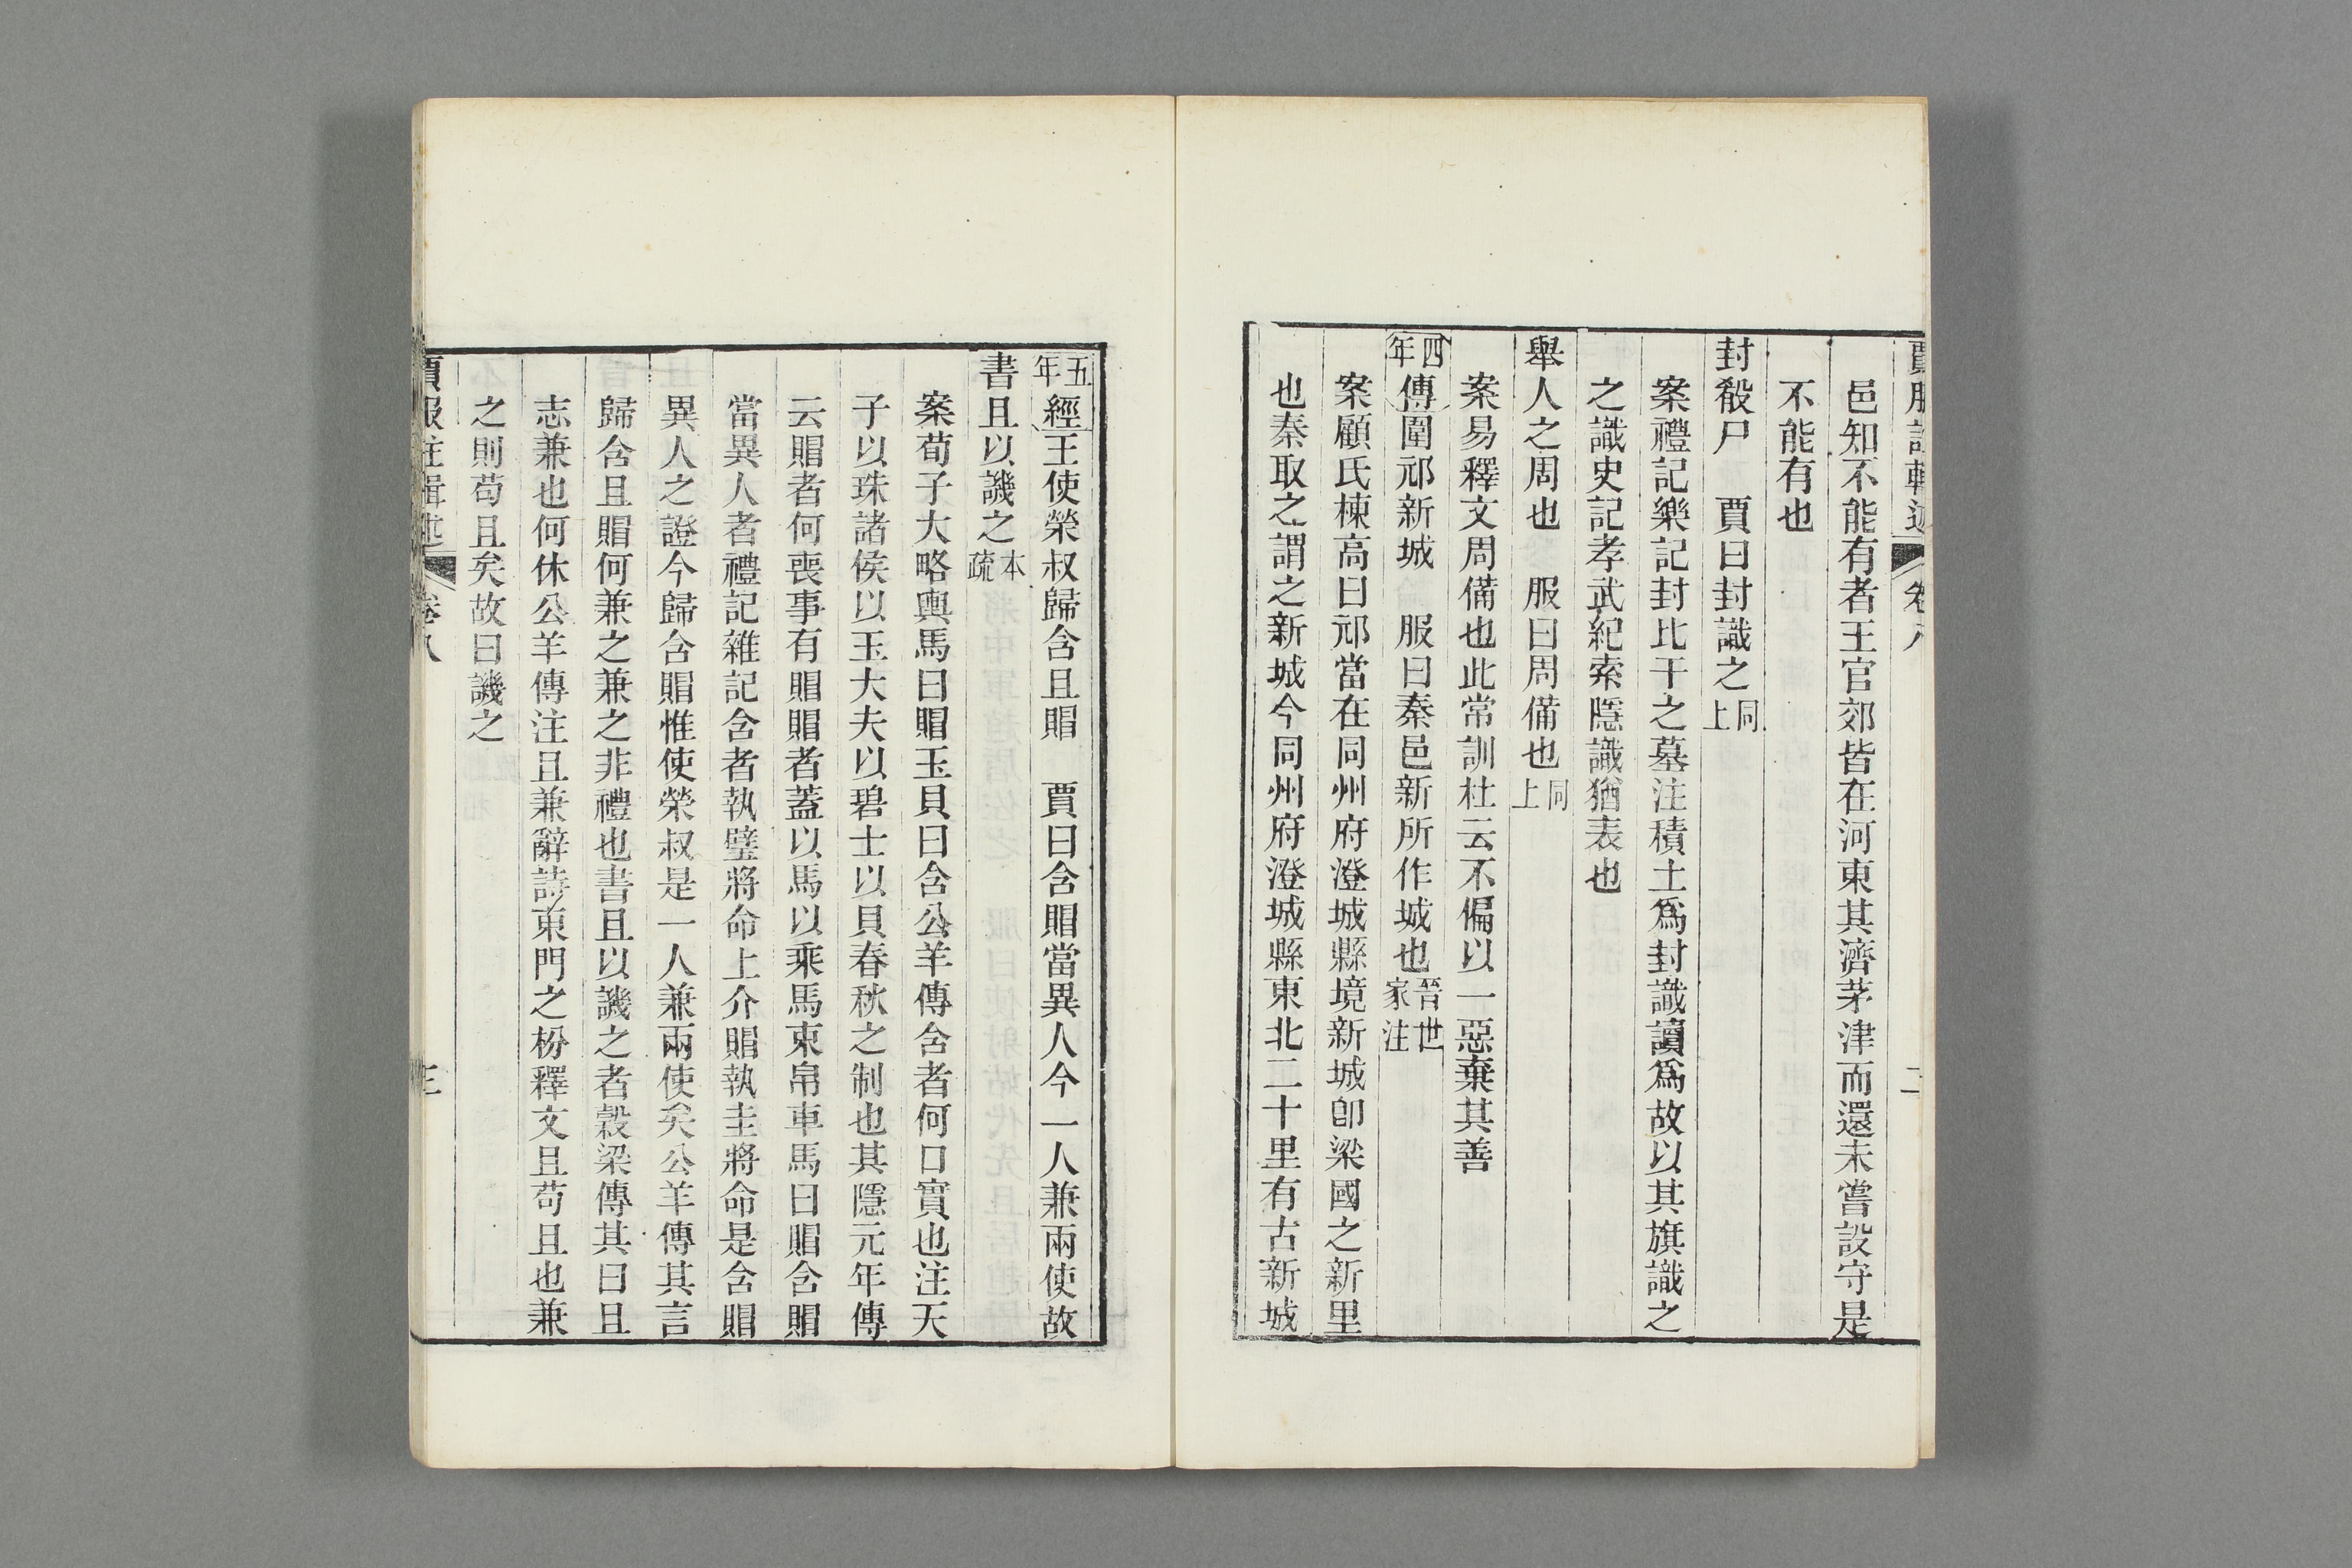 賈服注輯述 卷八 二
邑知不能有者王官郊皆在河東其濟茅津而還未嘗設守是
不能有也
封殽尸 賈曰封識之同上
案禮記樂記封比干之墓注積土爲封識讀爲故以其旗識之
之識史記孝武紀索隱識猶表也
舉人之周也 服曰周備也同上
案易釋文周備也此常訓杜云不偏以一惡棄其善
四年傳圍邧新城 服曰秦邑新所作城也晉世家注
案顧氏棟高曰邧當在同州府澄城縣境新城卽梁國之新里
也秦取之謂之新城今同州府澄城縣東北二十里有古新城
五年經王使榮叔歸含且賵 賈曰含賵當異人今一人兼兩使故
書且以譏之本疏
案荀子大略輿馬曰賵玉貝曰含公羊傳含者何口實也注天
子以珠諸侯以玉大夫以碧士以貝春秋之制也其隱元年傳
云賵者何喪事有賵賵者蓋以馬以乘馬束帛車馬曰賵含賵
當異人者禮記雜記含者執璧將命上介賵執圭將命是含賵
異人之證今歸含賵惟使榮叔是一人兼兩使矣公羊傳其言
歸含且賵何兼之兼之非禮也書且以譏之者穀梁傳其曰且
志兼也何休公羊傳注且兼辭詩東門之枌釋文且苟且也兼
之則苟且矣故曰譏之
賈服注輯述 卷八 三